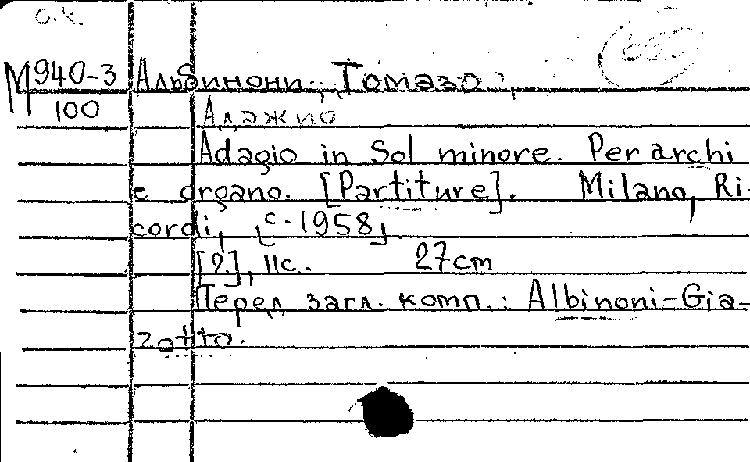 о.к.
М940-3 Альбинони, Томазо.
100
Адажио
Adagio in Sol minore. Per archi
e organo. [Partiture]. Milano, Ri-
cordi, [c. 1958]
[2], 11с. 27cm
Перед загл. комп.: Albinoni-Gia-
zotto.